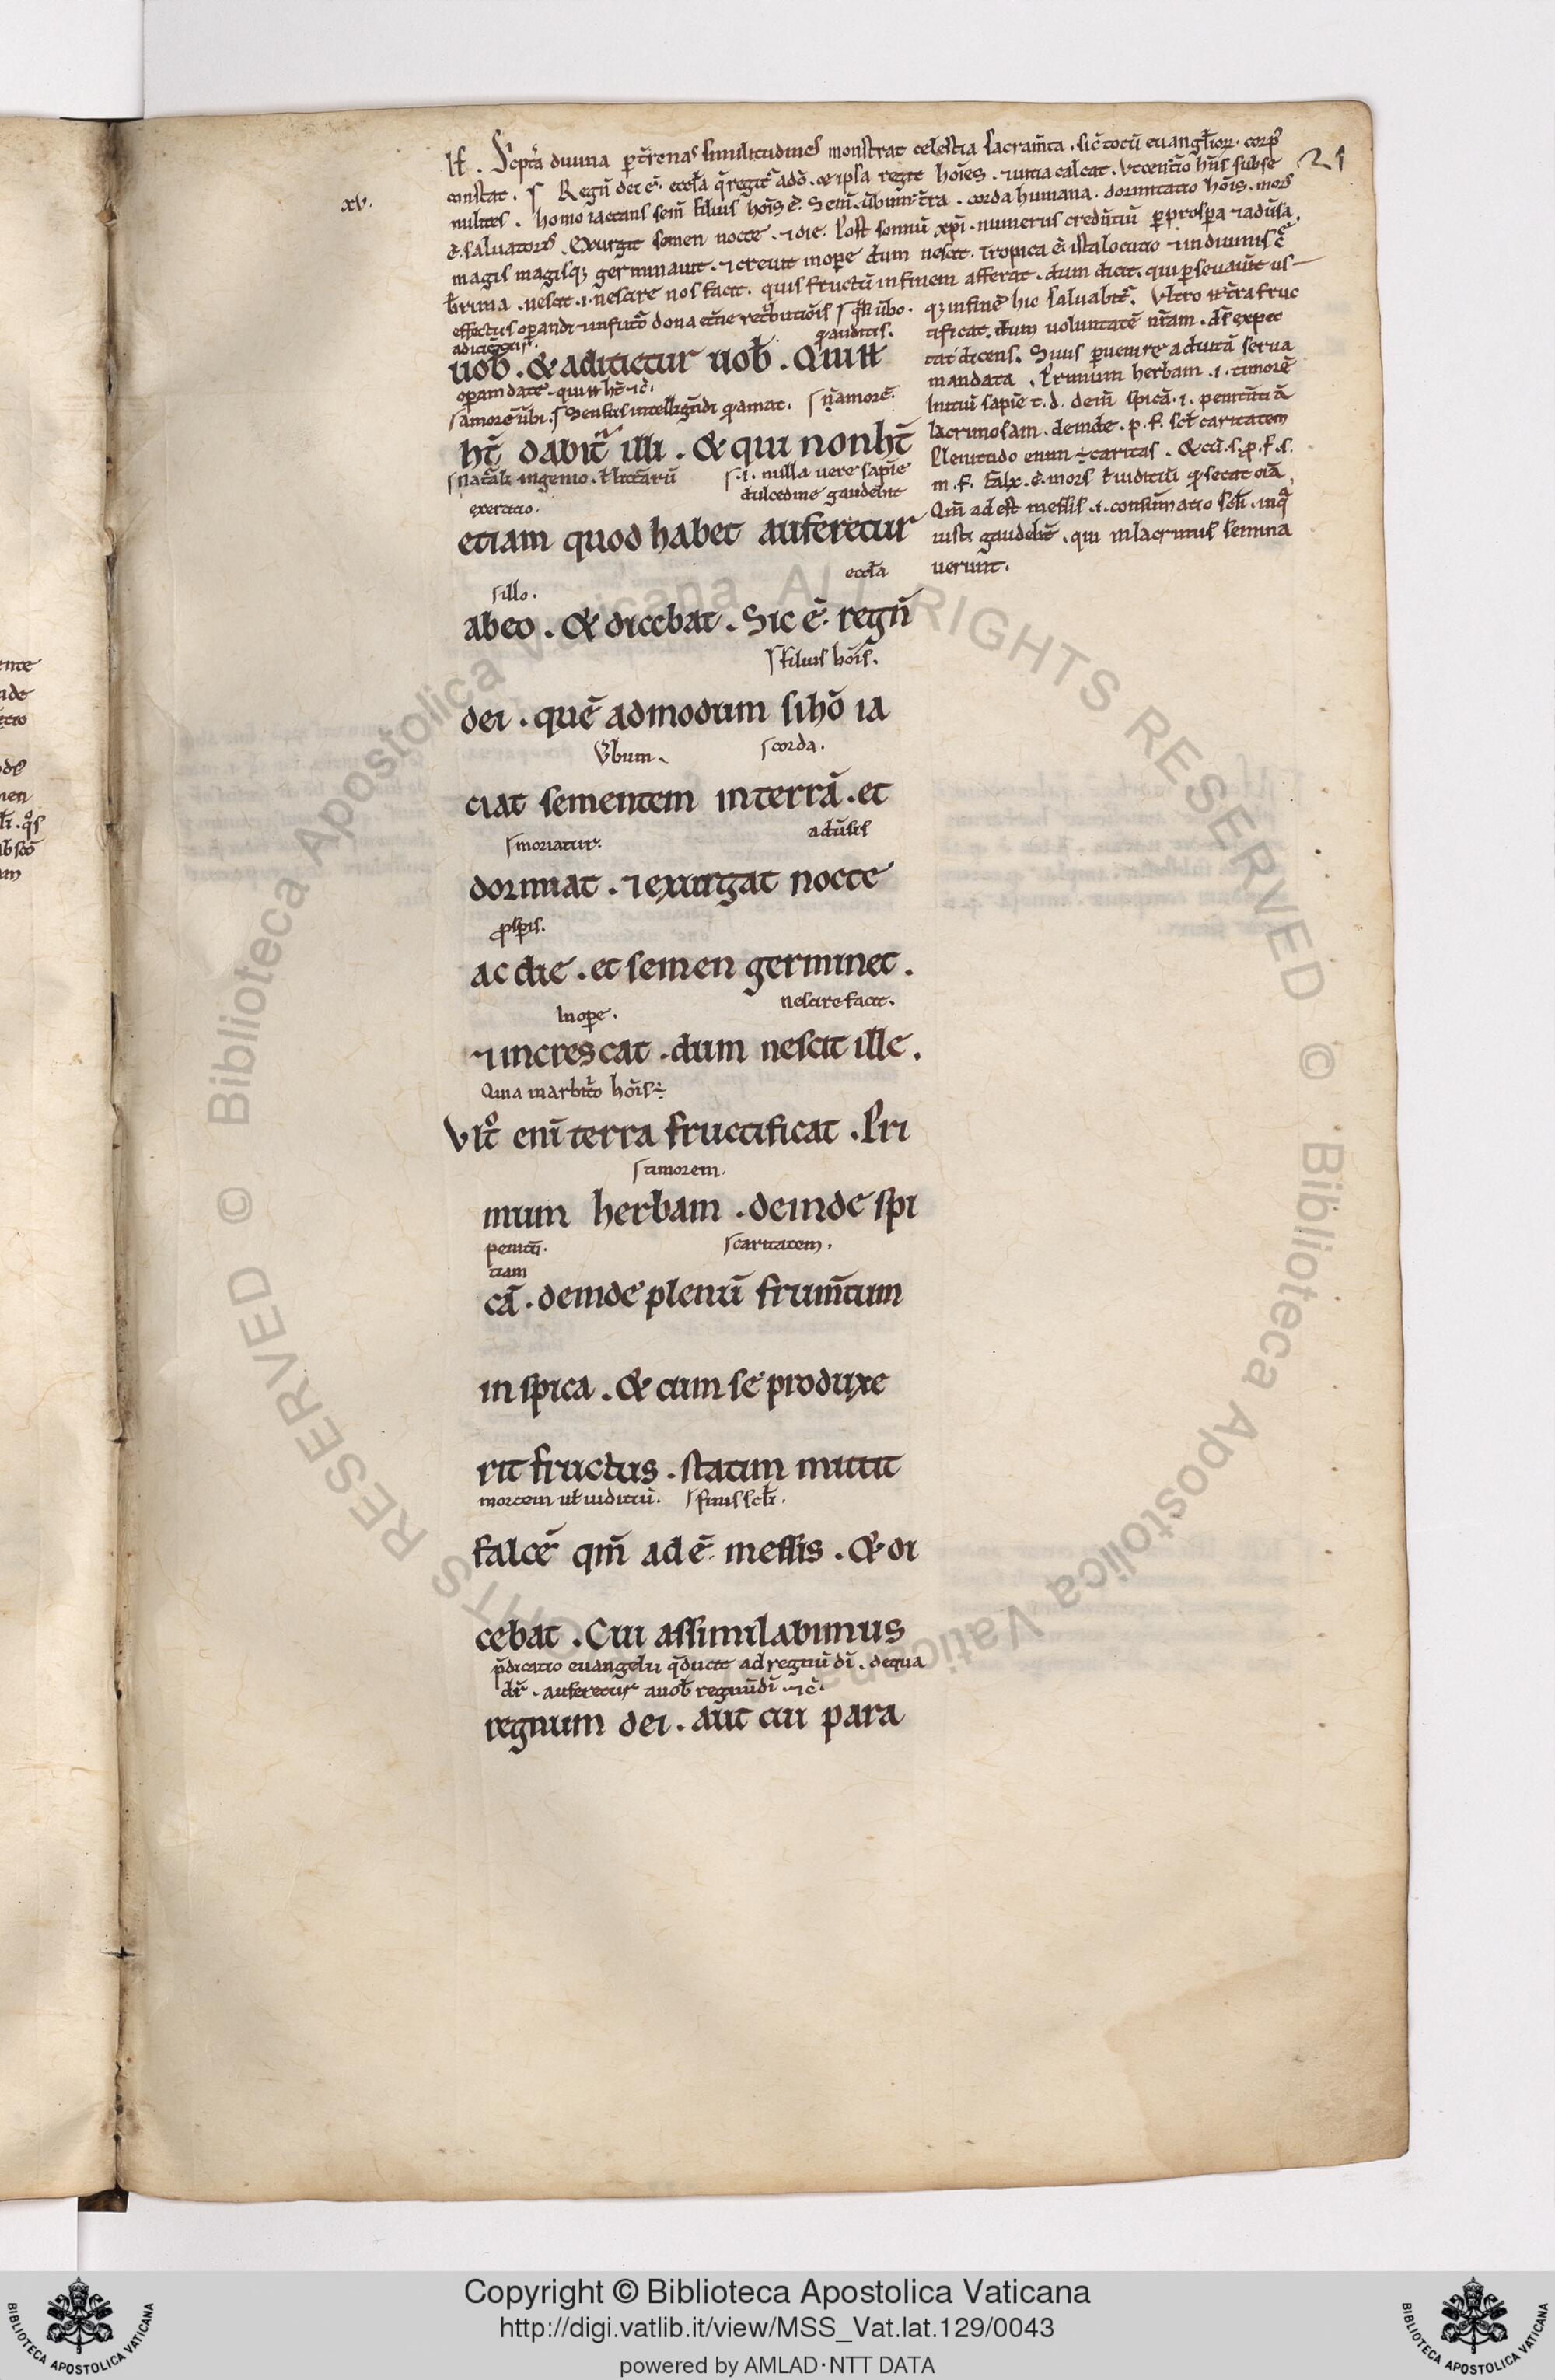 21
xv.
H. Sc͛pta diuina p̱ t͛renas similitudines monstrat celestia sacram̄ta . sic̄ totū euangl̄ior corp͛
constat . Regnū dei ē . eccl̄a q̄ regit͛ a dō . & ipsa regit hoīes . ⁊ uitia calcat .
milites . homo iactans sem̄ filius hoīs ē . Sem̄ . ūbum . t͛ra . corda humana . dormitatio hoīs . mors
ē saluatoris . Exurgit semen nocte . ⁊ die . Post somnū xp̄i . numerus credn̄tiū p̱ prosp̱a ⁊ adūsa
magis magisq; germinauit . ⁊ creuit in op̱e dum nescit . Tropica ē ista locutio
nescit .i. nescire nos facit . quis fructū in finem afferat . dum dicit . qui p̱seuaūit us
q; in finē hic saluabit͛ . Vltro t͛ra fruc
tificat . dum uoluntatē nr̄am . ds̄ expec
tat dicens . Si uis p̱uenire ad uitā serua
mandata . Primum herbam .i. timorē
Initiū sapiē t. d. dein̄ spicā .i. penitn̄tiā
lacrimosam . deinde . p. f. scl̄ caritatem
Plenitudo enim ÷ caritas . & cū . s. p. f. s.
m. f. Falx . ē mors ł iuditiū q̱ secat oīa .
Qm̄ adest messis .i. consūmatio scl̄i . in q̄
iusti gaudebt̄ . qui in lacrimis semina
uerunt .
effectus op̱andi ⁊ in fut͛o dona et͛ne ret͛butiōis
uob̄ . & aditietur uob̄ . Qui
op̱am date
amorē ūbi . Sensus intelligēdi q̱ amat . n̄ amorē .
ht̄ dabit͛ illi . & qui non ht̄
nat͛ali ingenio . ł litt͛arū
exercitio .
.i. nulla uere sapīe
dulcedine gaudebit
etiam quod habet auferetur
illo . eccl̄a
ab eo . & dicebat . Sic ē regnū
filius hoīs .
dei . quē admodum si hō ia
ūbum . corda .
ciat sementem in terrā . et
moriatur . adūsis
dormiat . ⁊ exurgat nocte
p̱sp̱is .
ac die . et semen germinet .
In op̱e . nescire facit .
⁊ increscat . dum nescit ille .
Quia in arbit͛o hoīs ÷
Vlt͛o enī terra fructificat . Pri
timorem .
mum herbam . deinde spi
penitn̄
tiam caritatem .
cā . deinde plenū frum̄tum
in spica . & cum se produxe
rit fructus . statim mittit
mortem uł iuditiū . finis scl̄i .
falcē qm̄ ad ē messis . & di
cebat . Cui assimilabimus
p̄dicatio euangelii q̄ ducit ad regnū dī . de qua
dr̄ . auferetur a uob̄ regnū dī . ⁊ c̄ .
regnum dei . aut cui para
Copyright © Biblioteca Apostolica Vaticana
http://digi.vatlib.it/view/MSS_Vat.lat.129/0043
powered by AMLAD·NTT DATA
BIBLIOTECA APOSTOLICA VATICANA
BIBLIOTECA APOSTOLICA VATICANA
© Biblioteca Apostolica Vaticana ALL RIGHTS RESERVED © Biblioteca Apostolica Vaticana ALL RIGHTS RESERVED